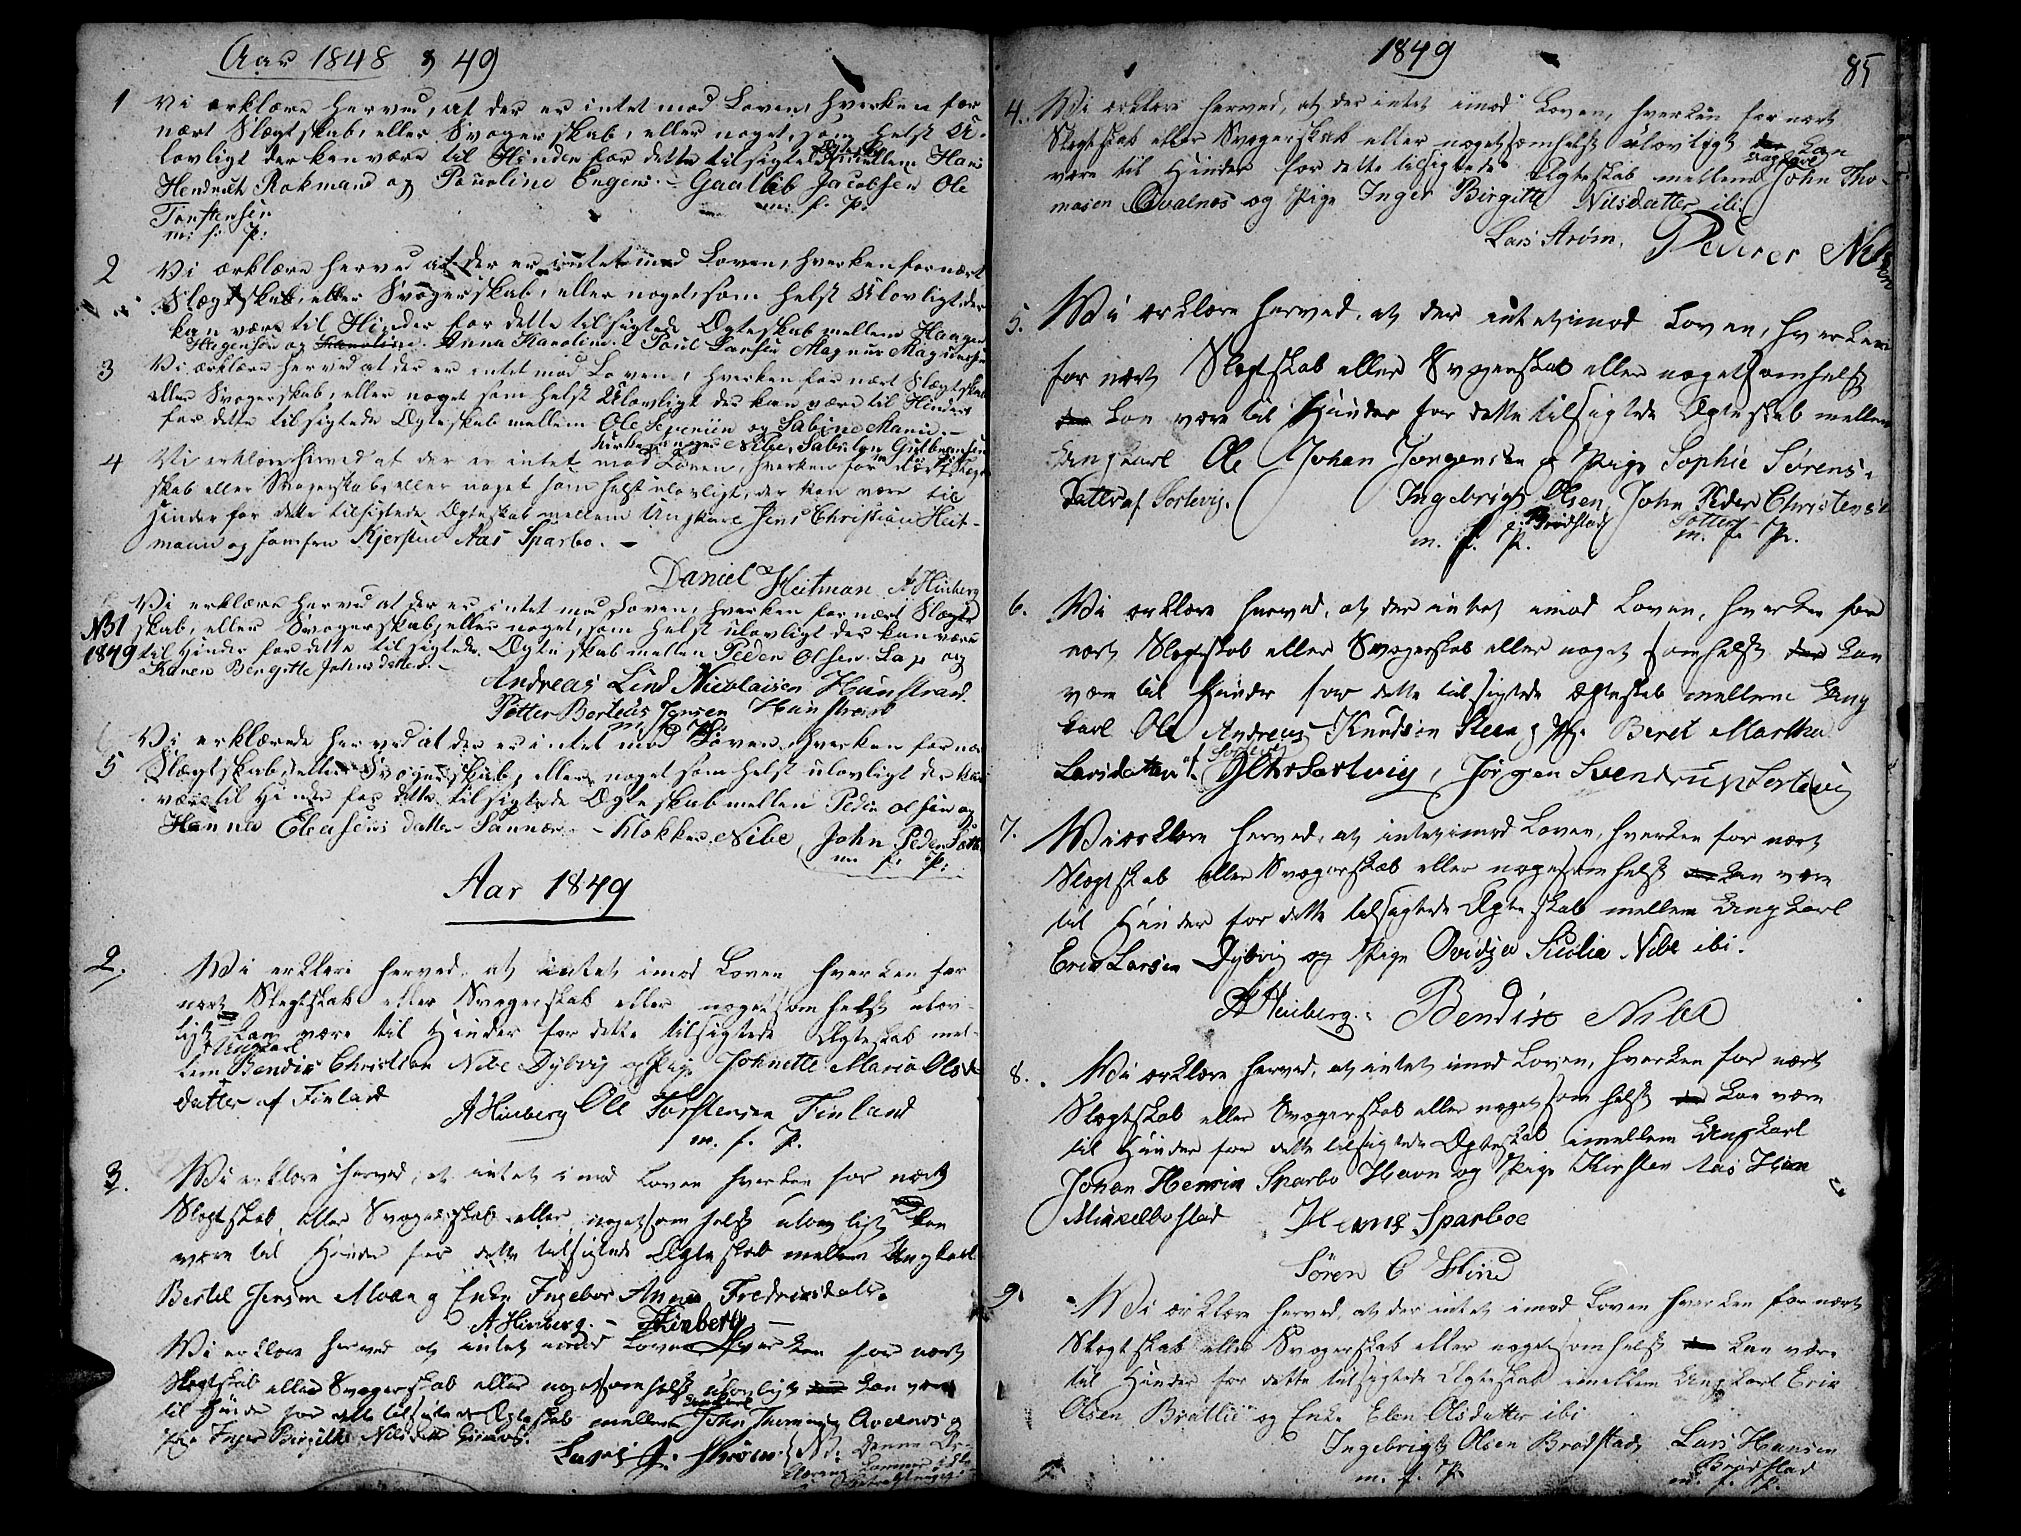 Aar 1848 & 49
1 Vi ærklære herved, at der er intet mod Loven, hverken for
nært Slægtskab, eller Svogerskab, eller noget, som helst U-
lovligt der kan være til Hinder for dette tilsigtede Ægteskab mellem Hans
Hendrich Rokmand og Pauline Engens. - Gaatlib Jacobsen Ole
Torstensen m: f: P:
m: f: P:
2 Vi ærklære herved at der er intet mod Loven, hverken for nært
Slægtskab, eller Svogerskab, eller noget, som helst Ulovligt der
kan være til Hinder for dette tilsigtede Ægteskab mellem Haagen
Hagensen og Anna Karoline. Paul Larsen Magnus Magnussen
3 Vi ærklære herved at der er intet mod Loven, hverken for nært Slægtskab
eller Svogerskab, eller noget som helst Ulovligt der kan være til Hinder
for dette tilsigtede Ægteskab mellem Ole Jepsen og Sabine Marie. -
Kirkesanger Nibe, Gulbransen
4 Vi erklære herved at der er intet mod Loven, hverken for nært Slægt
skab eller Svogerskab, eller noget som helst ulovligt, der kan være til
Hinder for dette tilsigtede Ægteskab mellem Ungkarl Jens Christian Heit-
mann og Jomfru Kjerstine Aas Sparbo. -
Daniel Heitman A Hinberg
Vi erklære herved at der er intet mod Loven, hverken for nært Slægt
N31 skab, eller Svogerskab, eller noget, som helst ulovligt der kan være
1849 til Hinder for dette tilsigtede Ægteskab mellem Peder Olsen Lap og
Karen Bergitte Johnsdatter. -
Andreas Lind Nicolaisen Hunstrad.
Petter Berteus Jensen Hunstrad
m. f. P.
Vi erklærede herved at der er intet mod Loven, hverken for nær
5 Slægtskab, eller Svogerskab, eller noget som helst ulovligt der kan
være til Hinder for dette tilsigtede Ægteskab mellem Peder Olsen og
Hanna Eleasens datter Sannæs. - Klokker Nibe, John Peder Sæter
m. f. P:
Aar 1849
2. Wi erklære herved, at intet imod Loven hverken for
nært Slegtskab eller Svogerskab eller nogetsomhelst ulov-
ligt kan være til Hinder for dette tilsigtede Ægteskab mel-
Ungkarl
lem Bendix Christian Nibe Dybvig og Pige Johnette Maria Ols-
datter af Finland
A Hinberg Ole Torstensen Finland
m. f. P.
3. Wi erklære herved, at intet imod Loven hverken for nært
Slegtskab, eller Svogerskab eller nogetsomhelst ulovligt kan
være til Hinder for dette tilsigtede Ægteskab mellem Ungkarl
Bertel Jensen Alvæn og Enke Ingebor Anna Fredriksdatr.
A Hinberg. - Hinberg -
Wi erklære herved at intet imod Loven hverken for nært
Slegtskab eller Svogerskab eller nogetsomhelst ulovligt der kan være
til Hinder for dette tilsigtede Ægteskab mellem John Thomasen Qvalnes og
Pige Inger Birgitte Nilsdatter
Lars Arøen NB. Denne Er-
klæring kommer
1849
85
4. Wi erklære herved, at der intet imod Loven, hverken for nært
Slegtskab eller Svogerskab eller nogetsomhelst ulovligt der kan
Ungkarl
være til Hinder for dette tilsigtede Ægteskab mellem John Tho-
masen Qvalnæs og Pige Inger Birgitte Nilsdatter ibi.
Lars Arøen. Peder Nilsen
5. Wi erklære herved, at der intet imod Loven, hverken
for nært Slegtskab eller Svogerskab eller nogetsomhelst
der kan være til Hinder for dette tilsigtede Ægteskab mellem
Ungkarl Ole Johan Jørgensen og Pige Sophie Sørens-
datter af Sortevig. Ingebrigt Olsen Brødstad John Peder Christens
m. f. P. m. f. P.
6. Wi erklære herved, at der intet imod Loven, hverken for
nært Slegtskab eller Svogerskab eller noget somhelst der kan
være til Hinder for dette tilsigtede Ægteskab mellem Ung
karl Ole Andreas Knudsen Steen og Pige Beret Martha
Larsdatter af Sortevig. Sortevig, Jørgen Svendsen Sortevig
7. Wi erklære herved, at intet imod Loven, hverken for nært
Slegtskab eller Svogerskab eller nogetsomhelst der kan være
til Hinder for dette tilsigtede Ægteskab mellem Ungkarl
Erik Larsen Dybvig og Pige Ovidia Sicilia Nibe ibi.
A Heiberg. Bendix Nibe
8. Wi erklære herved, at intet imod Loven, hverken for nært
Slegtskab eller Svogerskab eller nogetsomhelst der kan være
til Hinder for dette tilsigtede Ægteskab imellem Ungkarl
Johan Henrik Sparbo Havn og Pige Kirsten Aas Hiin
Mikkelbostad Hemig Sparboe
Søren C Hiind
9. Wi erklære herved, at der intet imod Loven hverken for nært
Slegtskab eller Svogerskab eller nogetsomhelst der kan være
til Hinder for dette tilsigtede Ægteskab imellem Ungkarl Erik
Olsen Bratlie og Enke Elen Olsdatter ibi
Ingebrigt Olsen Brødstad, Lars Hansen
Brødstad
m. f. P. m. f. P.